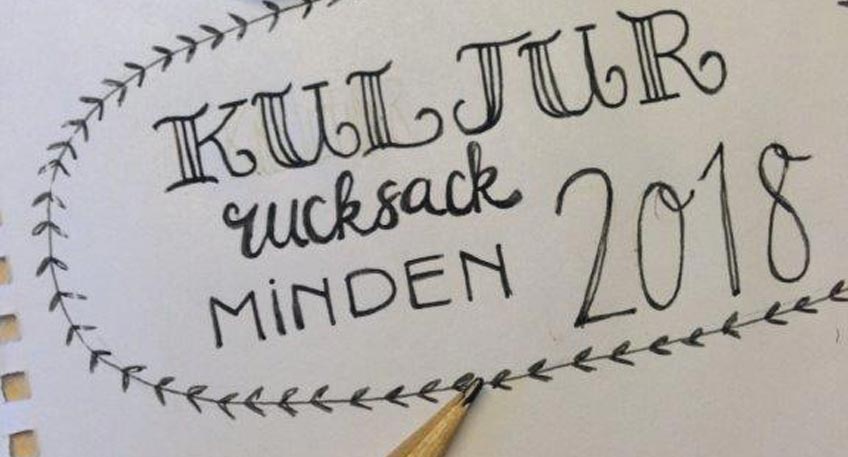 KULTUR
rucksack
MiNDEN 2018